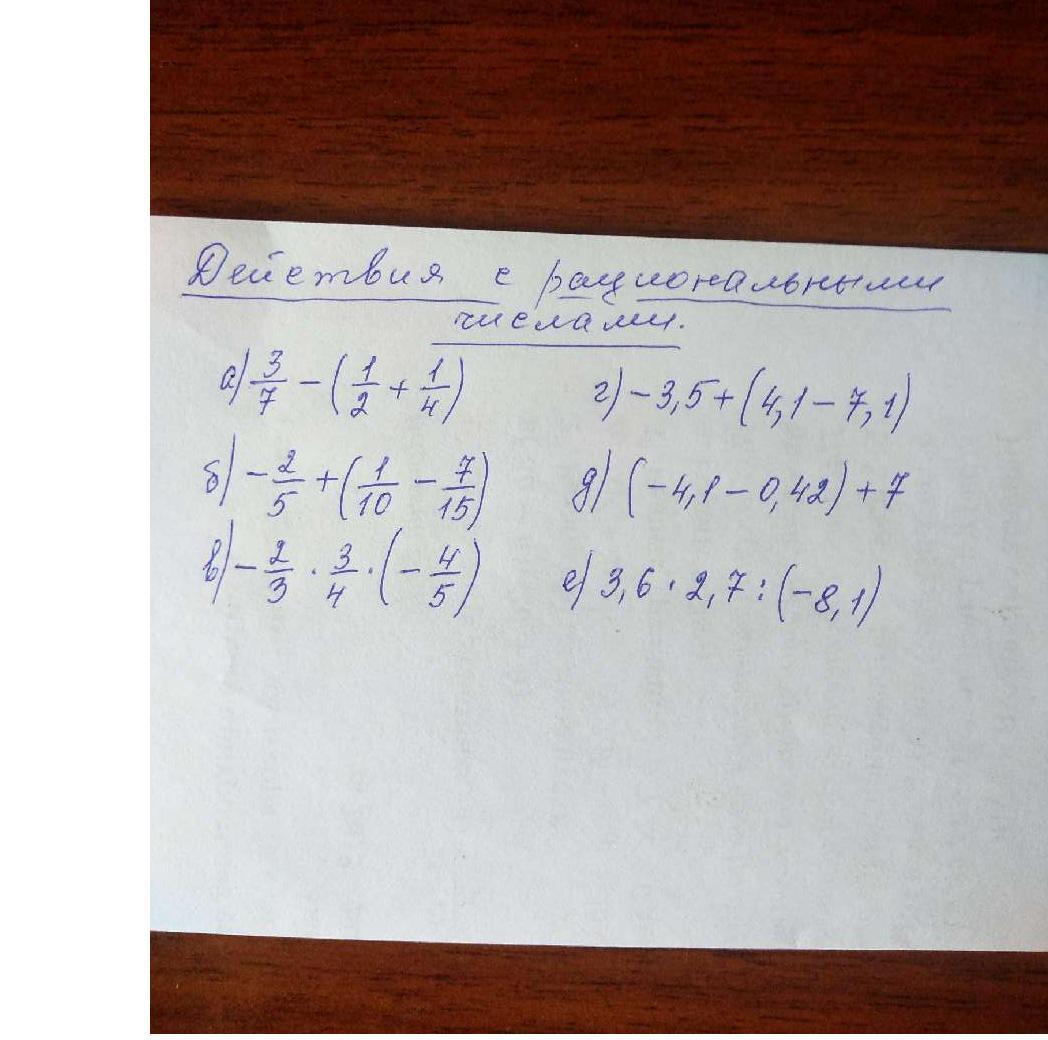 Действия с рациональными
числами.
а) 3/7 − (1/2 + 1/4)
г) −3,5 + (4,1 − 7,1)
б) −2/5 + (1/10 − 7/15)
д) (−4,1 − 0,42) + 7
в) −2/3 · 3/4 · (−4/5)
е) 3,6 · 2,7 : (−8,1)